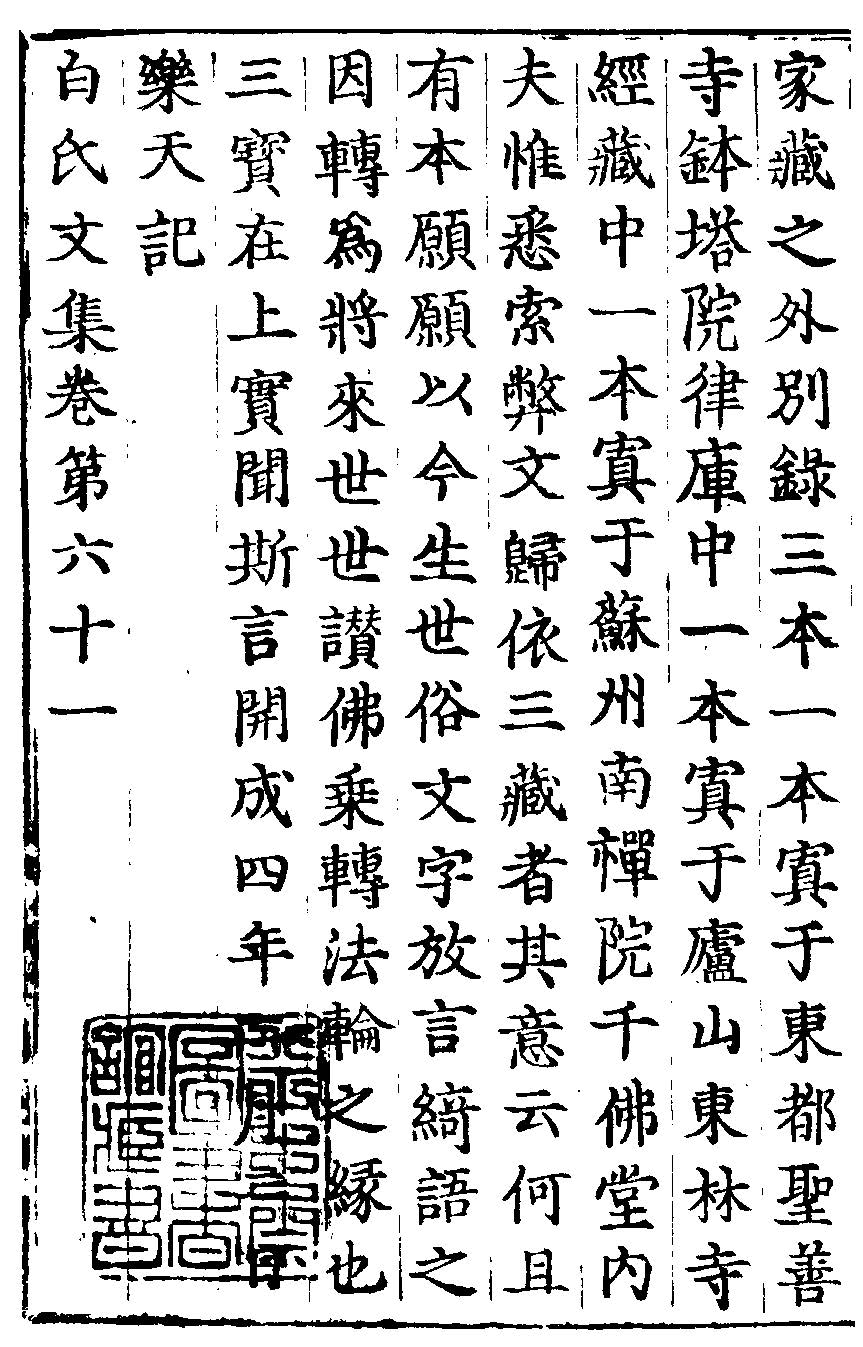 家藏之外別錄三本一本寘于東都聖善
寺鉢塔院律庫中一本寘于廬山東林寺
經藏中一本寘于蘇州南禪院千佛堂內
夫惟悉索弊文歸依三藏者其意云何且
有本願願以今生世俗文字放言綺語之
因轉爲將來世世讚佛乗轉法輪之緣也
三寶在上實聞斯言開成四年月日
樂天記
白氏文集卷第六十一